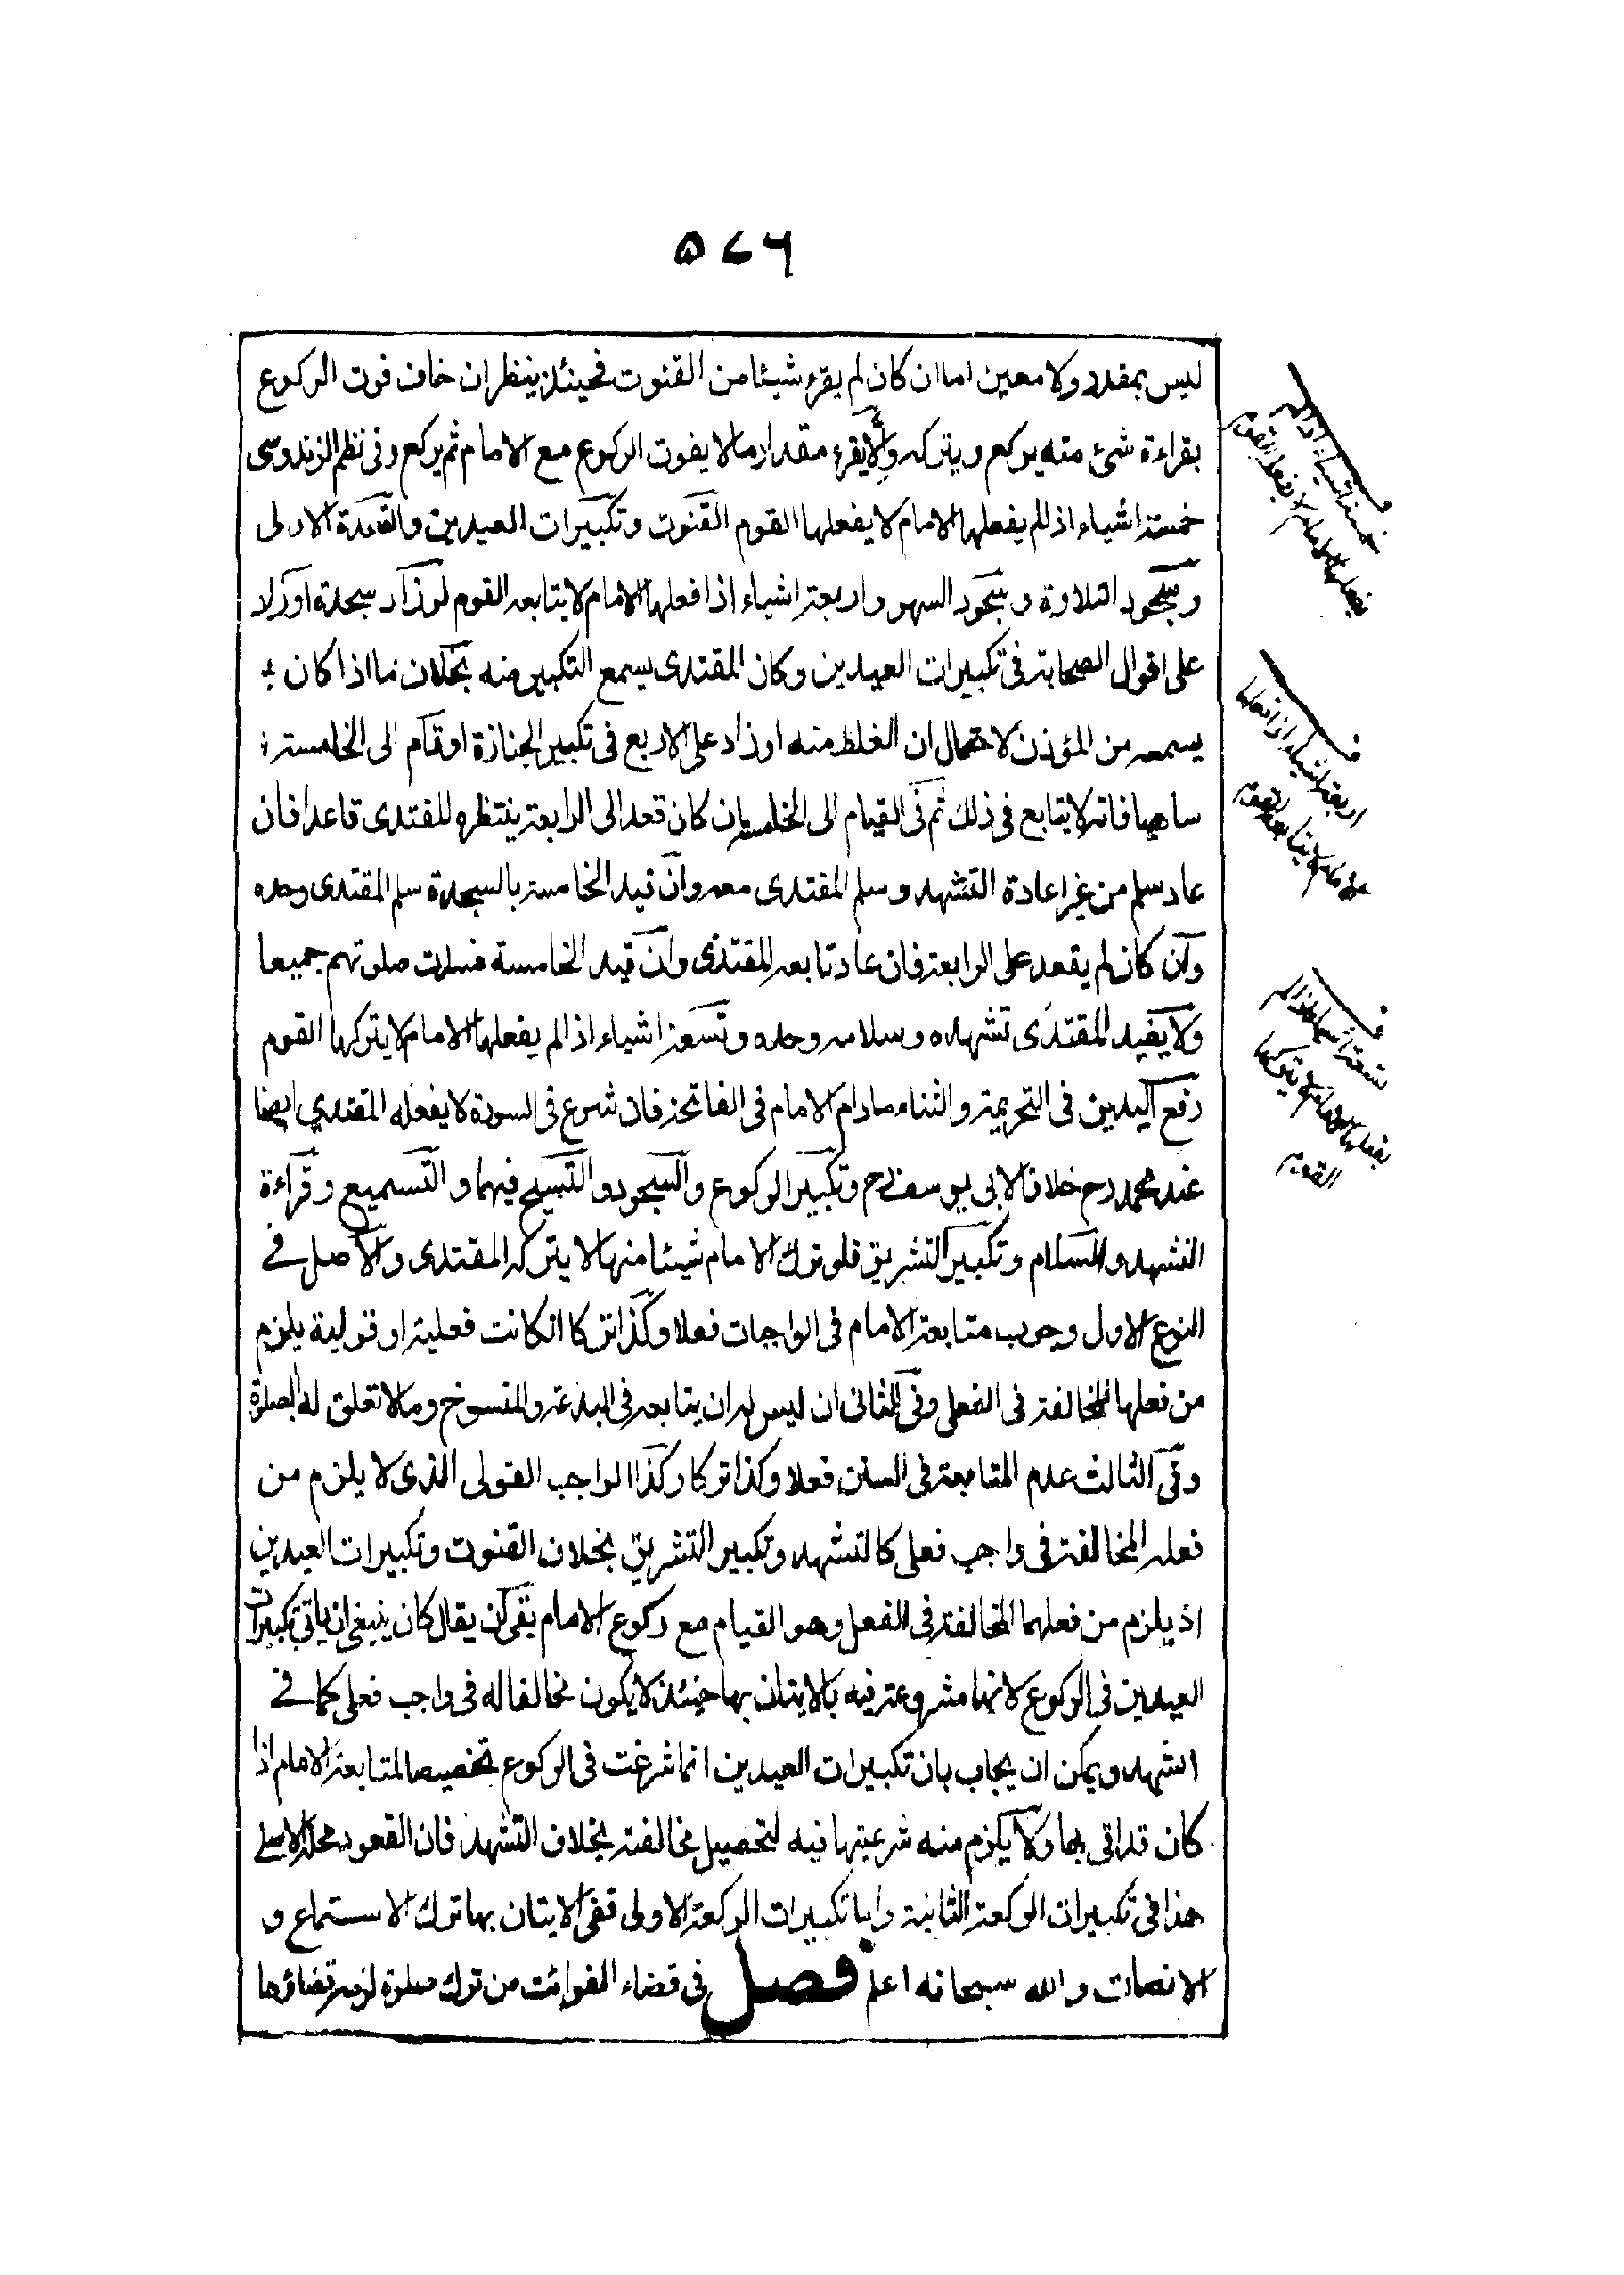 ۵۲۶
ليس بمقدر ولا معين اما ان كان لم يقرء شيئا من القنوت فحينئذ ينظر ان خاف فوت الركوع
بقراءة شئ منه يركع ويتركه والا يقرء مقدار ما لا يفوت الركوع مع الامام ثم يركع وفى نظم الزندوسى
خمسة اشياء اذا لم يفعلها الامام لا يفعلها القوم القنوت وتكبيرات العيدين والقعدة الاولى
وسجود التلاوة وسجود السهو واربعة اشياء اذا فعلها الامام لا يتابعه القوم لو زاد سجدة او زاد
على اقوال الصحابة فى تكبيرات العيدين وكان المقتدى يسمع التكبير منه بخلاف ما اذا كان
يسمعه من المؤذن لاحتمال ان الغلط منه او زاد على الاربع فى تكبير الجنازة او قام الى الخامسة
ساهيا فانه لا يتابع فى ذلك ثم فى القيام الى الخامسة ان كان قعد الى الرابعة ينتظره المقتدى قاعدا فان
عاد سلم من غير اعادة التشهد وسلم المقتدى معه وان قيد الخامسة بالسجدة سلم المقتدى وحده
وان كان لم يقعد على الرابعة فان عاد تابعه المقتدى وان قيد الخامسة فسدت صلوتهم جميعا
ولا يفيد المقتدى تشهده وسلامه وحده وتسعة اشياء اذا لم يفعلها الامام لا يتركها القوم
رفع اليدين فى التحريمة والثناء مادام الامام فى الفاتحة فان شرع فى السورة لا يفعله المقتدي ايضا
عند محمد رح خلافا لابى يوسف رح وتكبير الركوع والسجود والتسبيح فيهما والتسميع وقراءة
التشهد والسلام وتكبير التشريق فلو ترك الامام شيئا منها لا يتركه المقتدى والاصل فى
النوع الاول وجوب متابعة الامام فى الواجبات فعلا وكذا تركا ان كانت فعلية او قولية يلزم
من فعلها المخالفة فى الفعلى وفى الثانى ان ليس له ان يتابعه فى البدعة والمنسوخ وما لا تعلق له بالصلوة
وفى الثالث عدم المتابعة فى السنن فعلا وكذا تركا وكذا الواجب القولى الذى لا يلزم من
فعله المخالفة فى واجب فعلى كالتشهد وتكبير التشريق بخلاف القنوت وتكبيرات العيدين
اذ يلزم من فعلهما المخالفة فى الفعل وهو القيام مع ركوع الامام بقى ان يقال كان ينبغى ان ياتي بتكبيرات
العيدين فى الركوع لانها مشروعة فيه بالاتيان بها حينئذ لا يكون مخالفا له فى واجب فعلى كما فى
التشهد ويمكن ان يجاب بان تكبيرات العيدين انما شرعت فى الركوع تخصيصا لمتابعة الامام اذا
كان قد اتى بها ولا يلزم منه شرعيتها فيه لتحصيل مخالفته بخلاف التشهد فان القعود محله الاصلى
هذا فى تكبيرات الركعة الثانية واما تكبيرات الركعة الاولى ففى الاتيان بها ترك الاستماع و
الانصات والله سبحانه اعلم فصل فى قضاء الفوائت من ترك صلوة لزمه قضاؤها
خمسة اشياء اذا لم
يفعلها الامام لا يفعلها القوم
اربعة اشياء اذا فعلها
الامام لا يتابعه القوم
تسعة اشياء اذا لم
يفعلها الامام لا يتركها
القوم